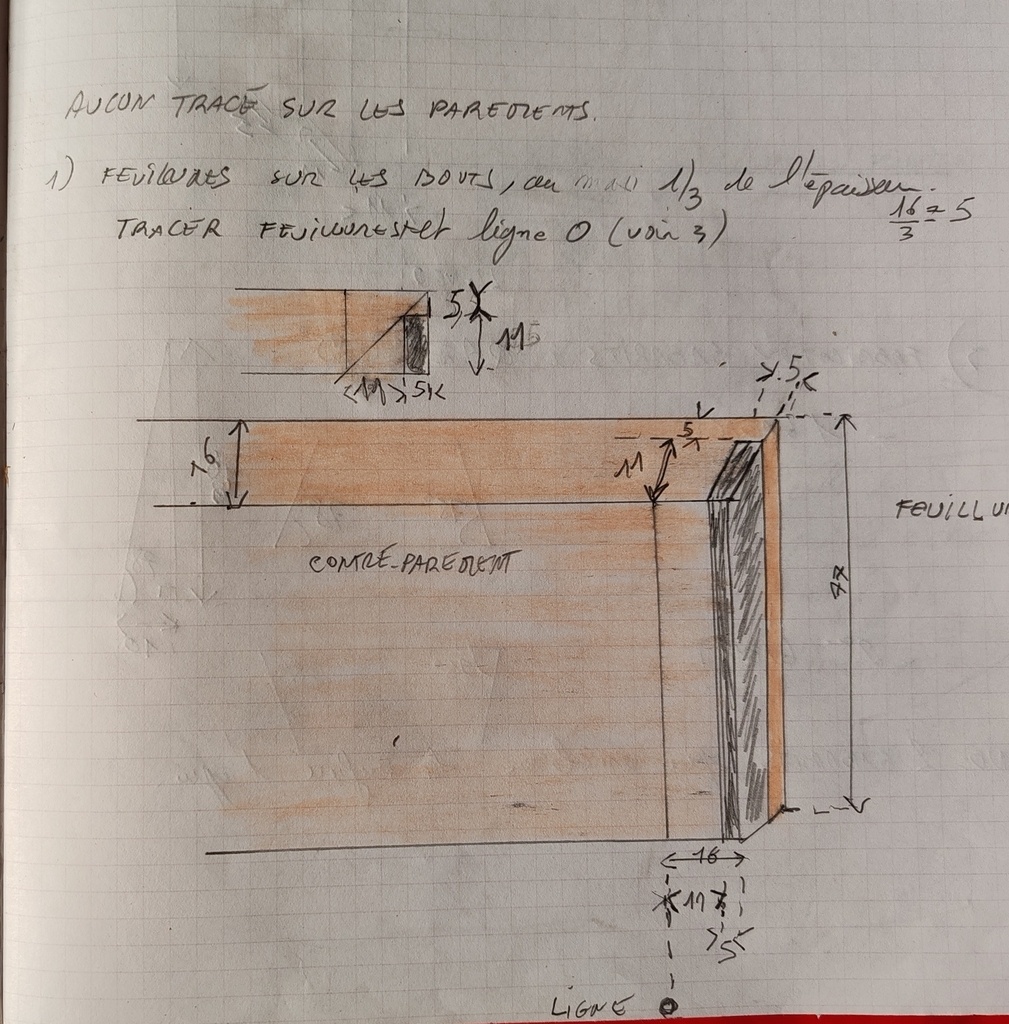 AUCUN TRACÉ SUR LES PAREMENTS.
1) FEUILLURES SUR LES BOUTS, au 1/3 de l'épaisseur.
16/3 = 5
TRACER FEUILLURES et ligne 0 (voir 3)
5
11
11 5
5
16
5
11
FEUILLU
CONTRE-PAREMENT
16
11
5
LIGNE 0